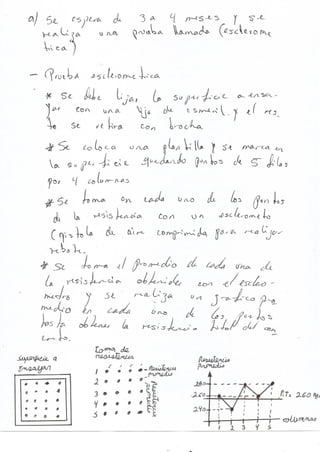 a) Se espera de 3 a 4 meses y se
realiza una prueba llamada (esclerome
trica)
- Prueba esclerometrica
* Se debe lijar la superficie a ensa-
yar con una lija de esmeril y el res
to se retira con brocha
* Se coloca una plantilla y se marca en
la superficie quedando puntos de 5 filas
por 4 columnas
* Se toma en cada uno de los puntos
de la resistencia con un esclerometo
(pistola de aire comprimida para realizar
rebote.
* Se toma el promedio de cada una de
la resistencia obtenidas con el esclero-
metro y se realiza un grafico pro
medio en cada uno de los puntos
hasta obtener la resistencia total del con
creto.
superficie a
Ensayar
toma de
resistencia
1
2
3
4
5
Resistencia
promedio
Resistencia
promedio
Resistencia
promedio
280
260
240
RT= 260
1 2 3 4 5
columnas